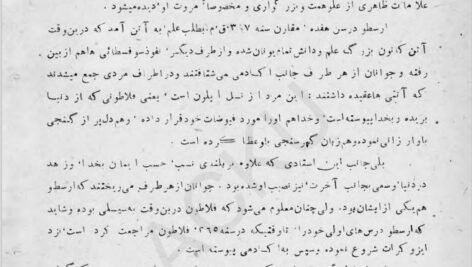 علامات ظاهری از علوهمت و بزرگواری و مخصوصاً مروت او دیده میشود.
ارسطو در سن هفده، مقارن سنه ۳۶۷ ق م، بطلب علم به آتن آمد که درین وقت
آتن کانون بزرگ علم و دانش تمام یونان شده و از طرف دیگر نفوذ سوفسطائی ها هم از بین
رفته و جوانان از هر طرف جانب اکادمی می شتافتند و در اطراف مردی جمع میشدند
که آتنی ها عقیده داشتند: این مرد از نسل اپلون است. یعنی فلاطونی که از دنیا
بریده و بخدا پیوسته است. و خدا هم او را مورد فیوضات خود قرار داده، و هم دل پر از گنجی
باو ارزانی نموده و هم زبان گهر سنجی باو عطا کرده است.
بلی جانب این استادی که علاوه بر بلندی نسب، حسب ایمان بخدا و زهد
در دنیا و سعی بجانب آخرت نیز نصیب او شده بود. جوانان از هر طرف می ریختند که ارسطو
هم یکی از ایشان بود. ولی چنان معلوم می شود که فلاطون درین وقت به سیسلی بوده و شاید
که ارسطو درس های اولی خود را تا وقتیکه در سنه ۳۶۵ فلاطون مراجعت کرده است، نزد
ایزوکرات شروع نموده و سپس به اکادمی پیوسته است.
ACKU